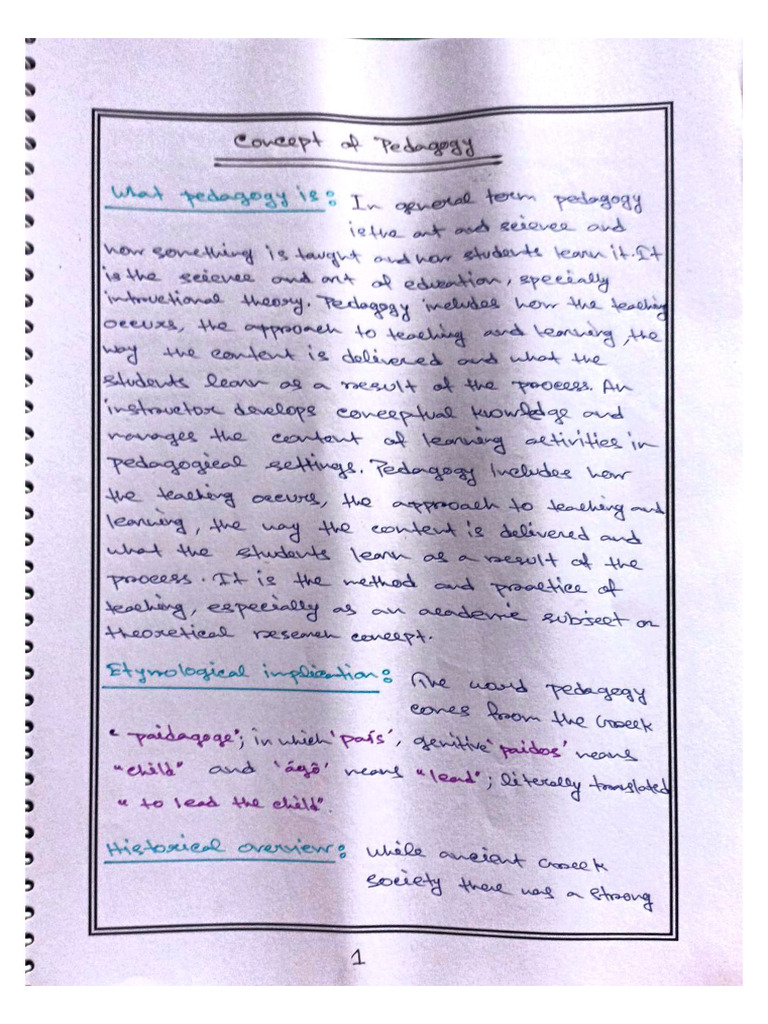 Concept of Pedagogy
What pedagogy is: In general term pedagogy
is the art and science and
how something is taught and how students learn it. It
is the science and art of education, specially
intructional theory. Pedagogy includes how the teaching
occurs, the approach to teaching and learning, the
way the content is delivered and what the
students learn as a result of the process. An
instructor develops conceptual knowledge and
manages the content of learning activities in
pedagogical settings. Pedagogy Includes how
the teaching occurs, the approach to teaching and
learning, the way the content is delivered and
what the students learn as a result of the
process. It is the method and practice of
teaching, especially as an academic subject or
theoretical research concept.
Etymological implication: The word pedagegy
comes from the Greek
"paidagoge"; in which 'país', genitive 'paidos' means
"child" and 'ágō' means "lead"; literally translated
"to lead the child".
Historical overview: While ancient Greek
society there was a strong
1